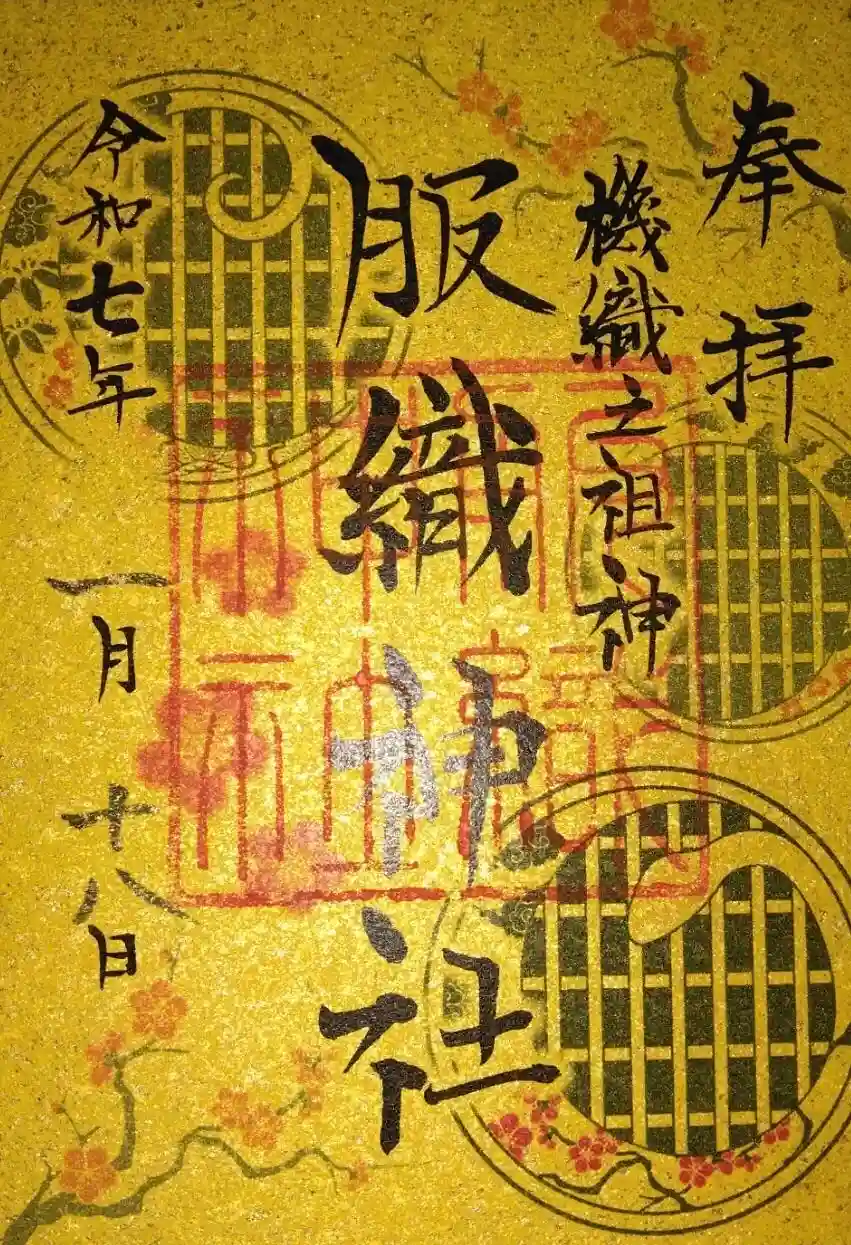 奉拝
機織之祖神
服織神社
令和七年
一月
十八日